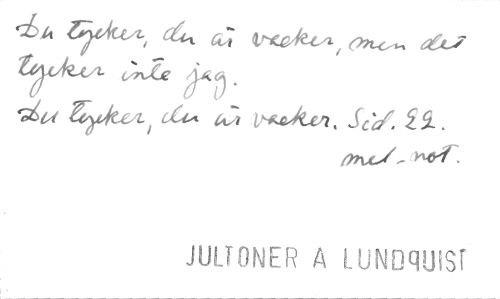 Du tycker, du är vacker, men det
tycker inte jag.
Du tycker, du är vacker. Sid. 22.
mel-not.
JULTONER A LUNDQUIST